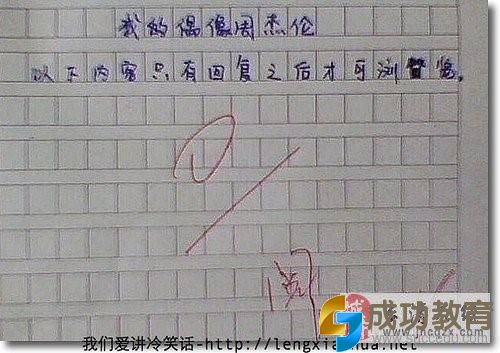 我的偶像周杰伦
以下内容只有回复之后才可浏览。
0
阅
成功教育
www.jncgzx.com
我们爱讲冷笑话-http://lengxiaohua.net